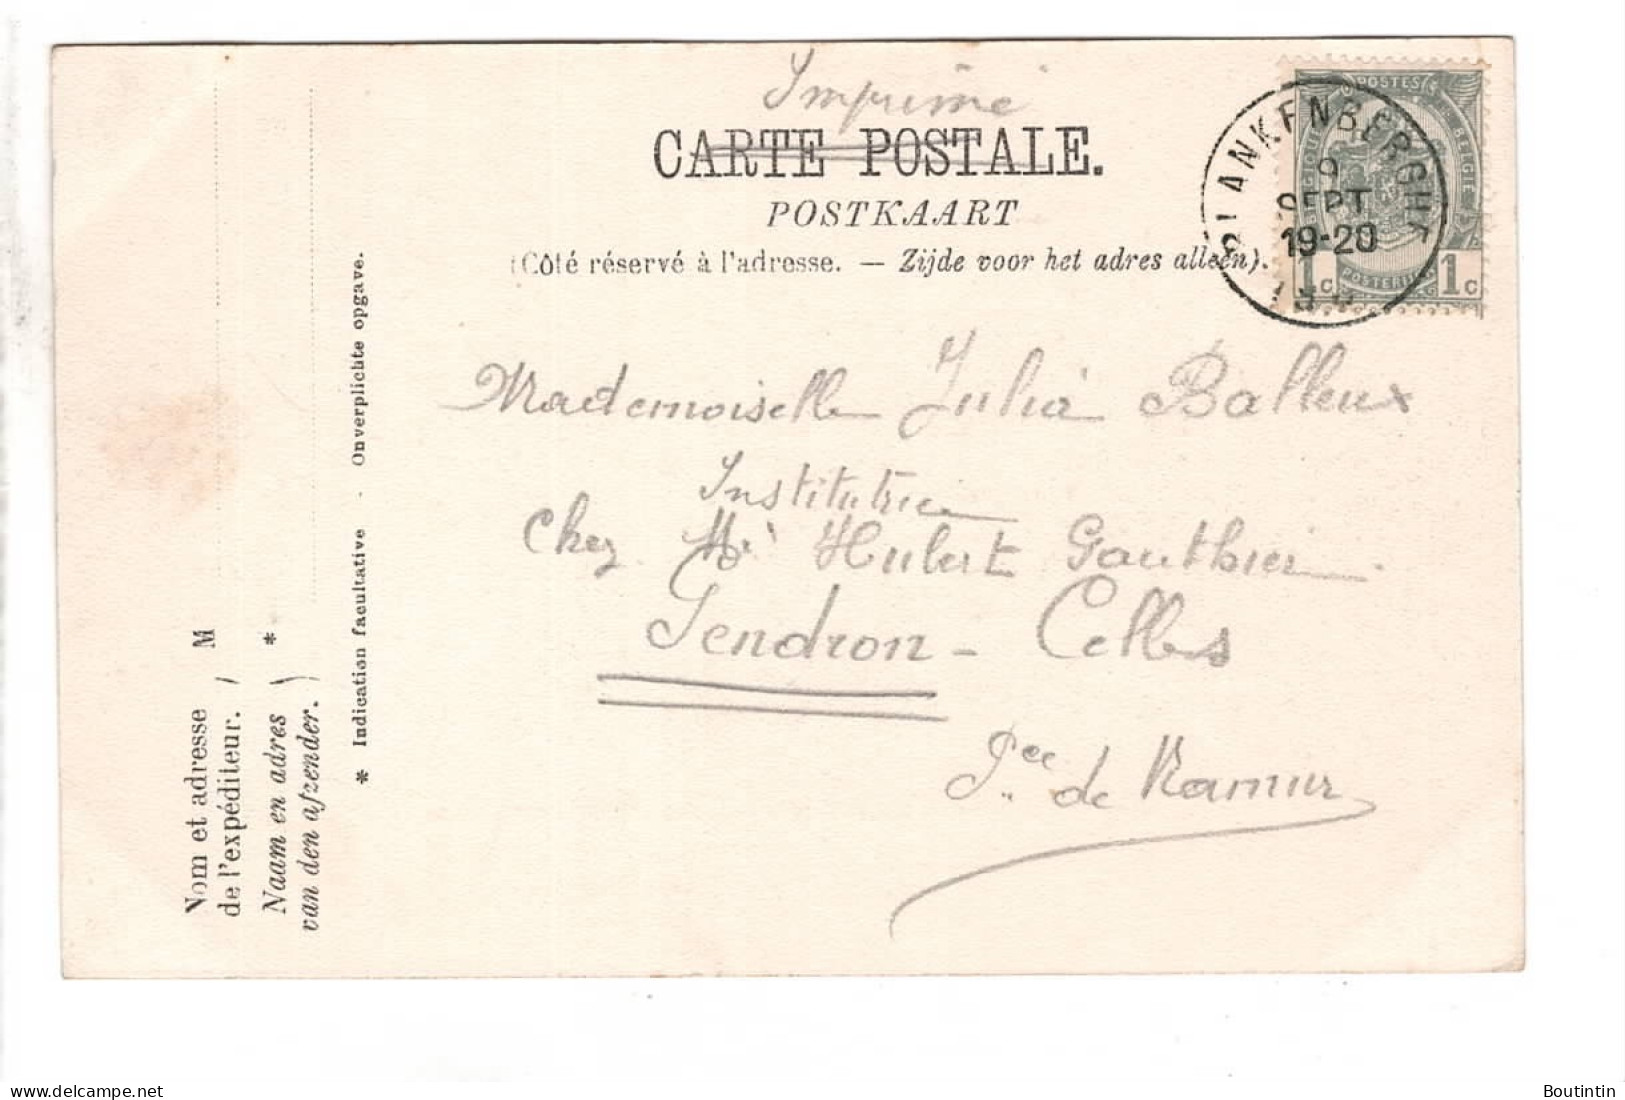 Imprimé
CARTE POSTALE.
POSTKAART
(Côté réservé à l'adresse. — Zijde voor het adres alleen).
BLANKENBERGHE
9
SEPT
19-20
POSTES
BELGIE
POSTERIJEN
1c 1c
Mademoiselle Julia Balleux
Institutrice
Chez Mr Hubert Gauthier
Gendron - Celles
Pce de Namur
Nom et adresse
de l'expéditeur. M
Naam en adres *
van den afzender.
* Indication facultative - Onverplichte opgave.
delcampe.net
Boutintin